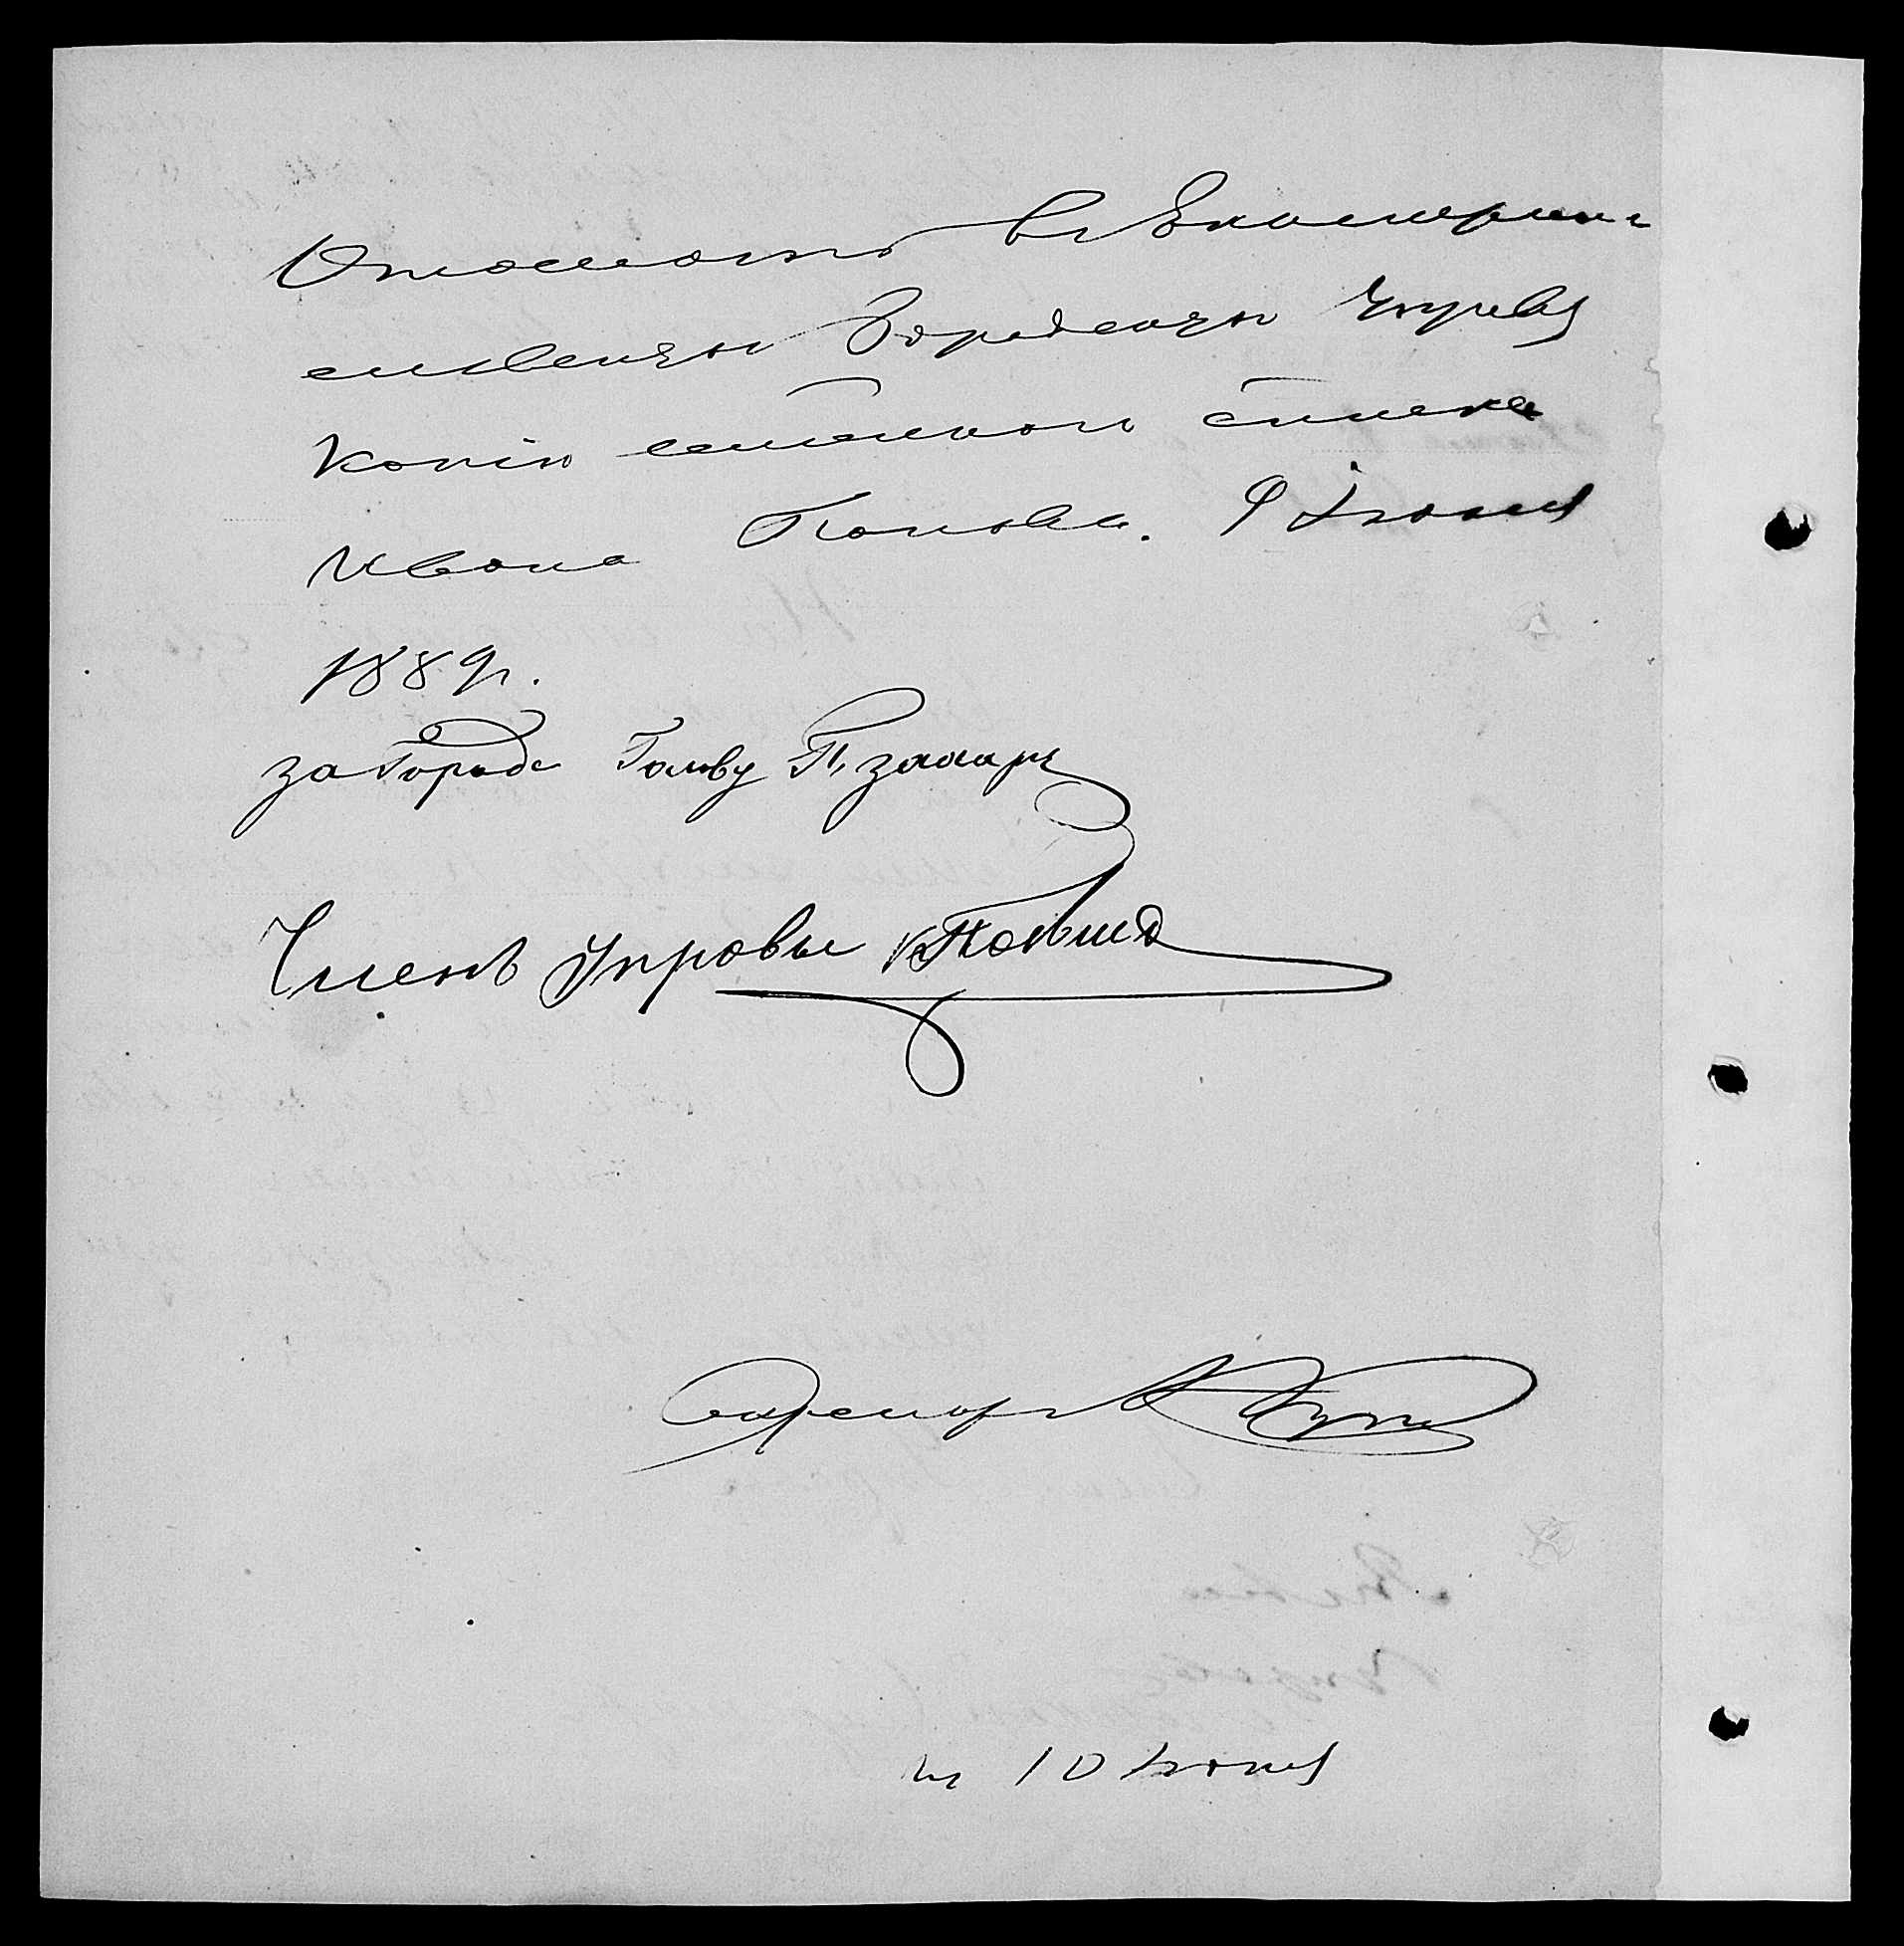 Отослать въ Екатерин
славскую Городскую Управу
копію семейнаго списка
Ивана Попова. 9 Іюня
1889 г.
за Город. Голову П.
Членъ Управы
Секретарь
10 Іюня